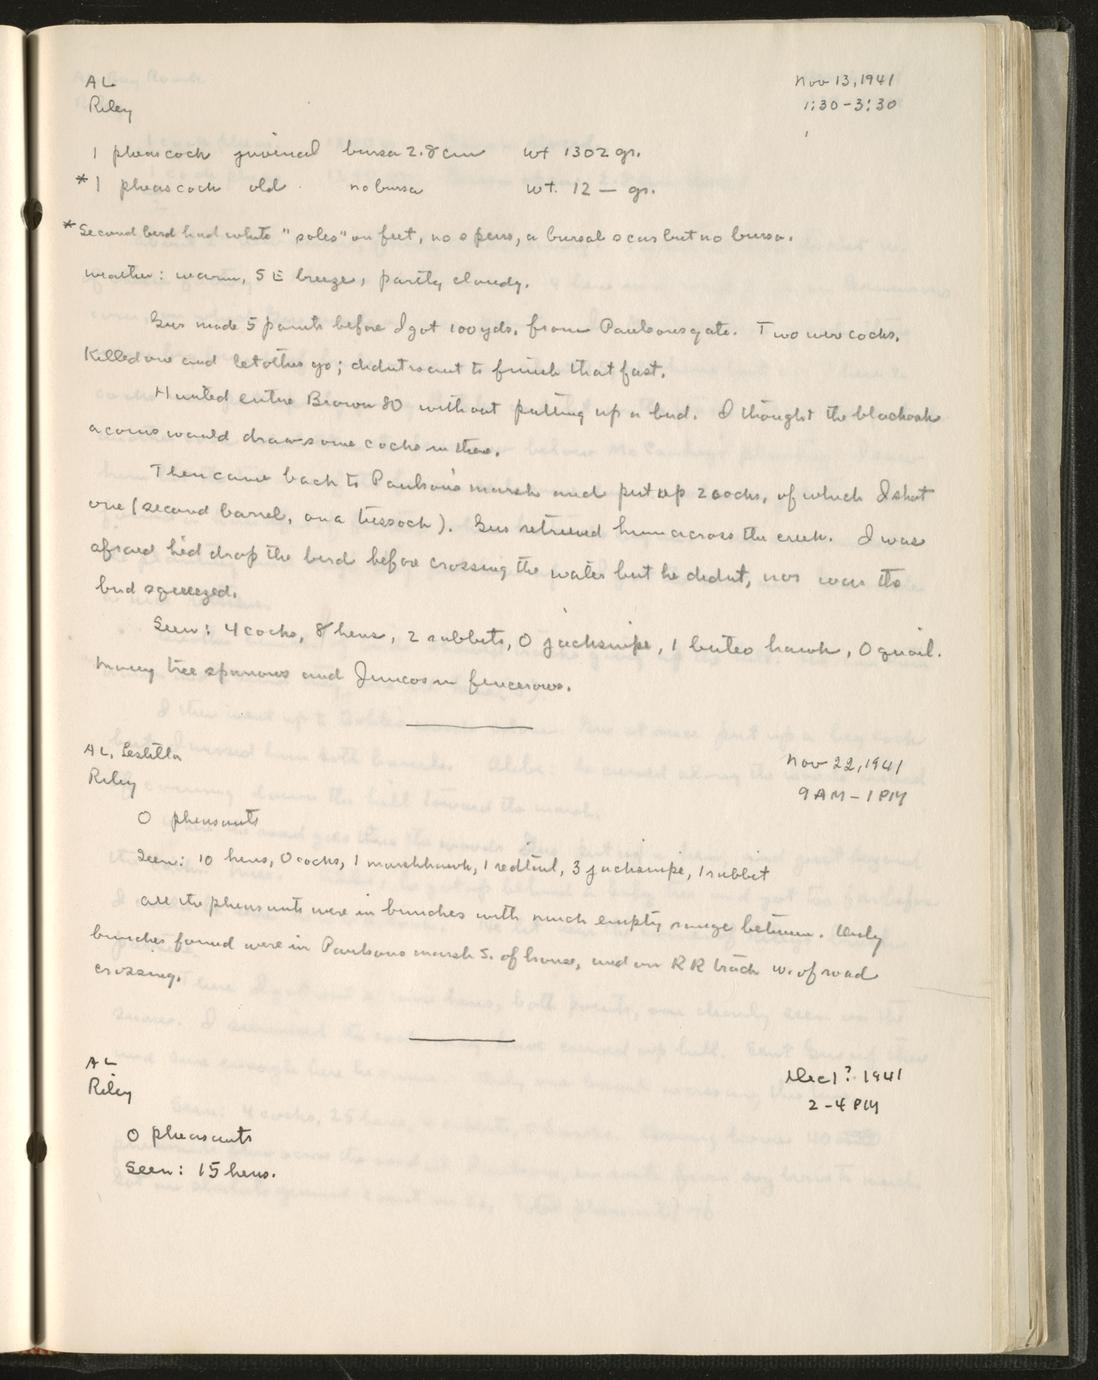 AL
Nov 13, 1941
Riley
1:30-3:30
1 pheas cock juvenal bursa 2.8 cm wt 1302 gr.
*1 pheas cock old no bursa wt. 12 — gr.
*Second bird had white "soles" on feet, no spurs, a bursal scar but no bursa.
Weather: warm, SE breeze, partly cloudy.
Gus made 5 points before I got 100 yds. from Paulsons gate. Two were cocks.
Killed one and let other go; didnt want to finish that fast.
Hunted entire Brown 80 without putting up a bird. I thought the blackoak
acorns would draw some cocks in there.
Then came back to Paulson's marsh and put up 2 cocks, of which I shot
one (second barrel, on a tussock). Gus retrieved him across the creek. I was
afraid he'd drop the bird before crossing the water but he didnt, nor was the
bird squeezed.
Seen: 4 cocks, 8 hens, 2 rabbits, 0 jacksnipe, 1 buteo hawk, 0 quail.
Many tree sparrows and Juncos in fencerows.
AL, Estella
Nov 22, 1941
Riley
9 AM - 1 PM
0 pheasants
Seen: 10 hens, 0 cocks, 1 marshhawk, 1 redtail, 3 jacksnipe, 1 rabbit
All the pheasants were in bunches with much empty range between. Only
bunches found were in Paulsons marsh S. of house, and on RR track w. of road
crossing.
AL
Dec 1? 1941
Riley
2-4 PM
0 pheasants
Seen: 15 hens.